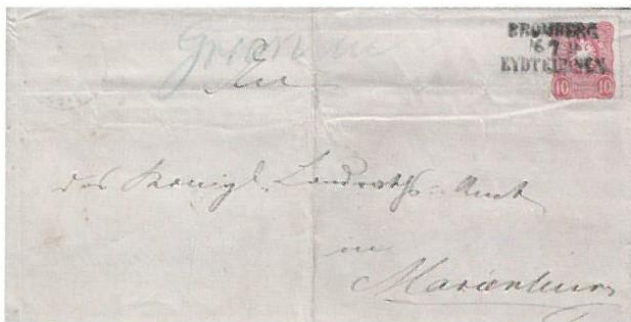 BROMBERG
6 7
EYDTKUHNEN
10 10
An
das Königl. Landraths-Amt
in
Marienburg